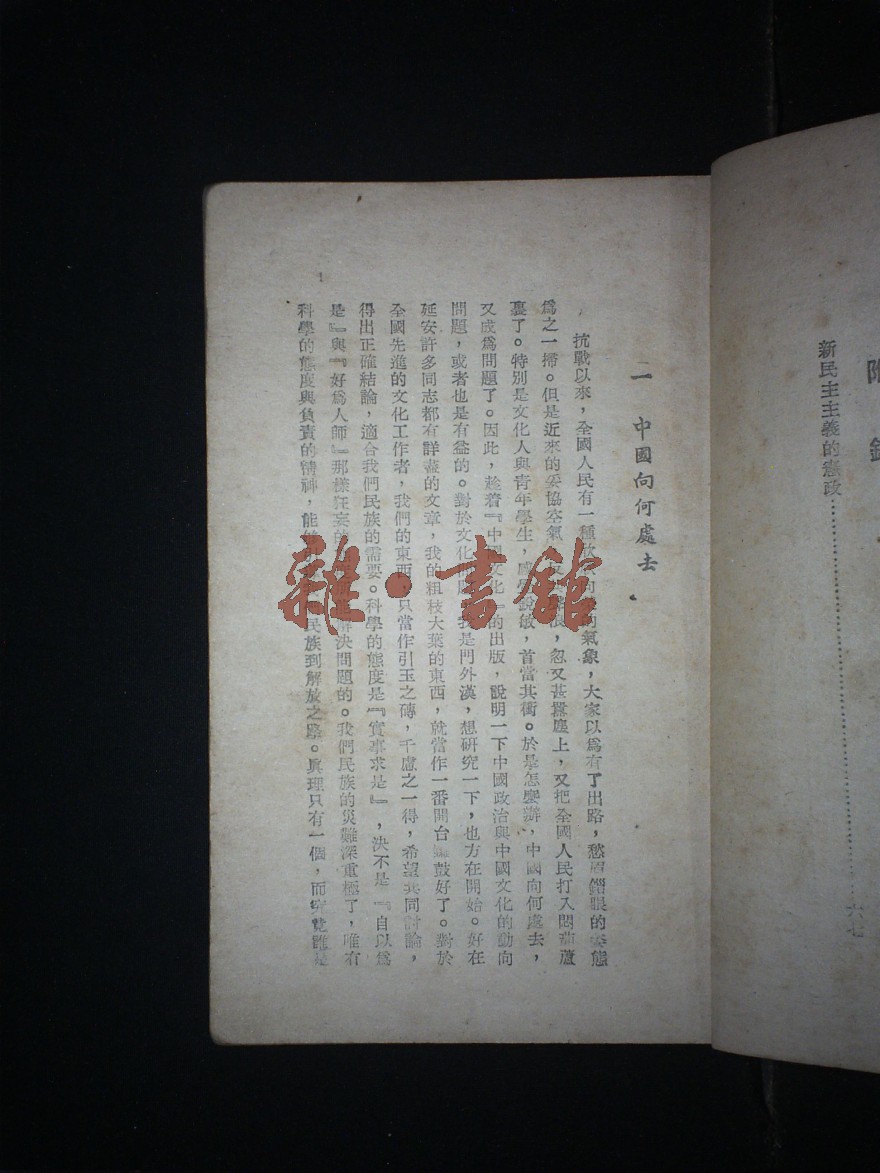 新民主主義的憲政……………………六七
二 中國向何處去
抗戰以來，全國人民有一種欣欣向的氣象，大家以爲有了出路，愁眉鎖眼的姿態
爲之一掃。但是近來的妥協空氣，浪，忽又甚囂塵上，又把全國人民打入悶葫蘆
裏了。特別是文化人與青年學生，感覺銳敏，首當其衝。於是怎麼辦，中國向何處去，
又成爲問題了。因此，趁着『中國文化』的出版，說明一下中國政治與中國文化的動向
問題，或者也是有益的。對於文化問題，我是門外漢，想研究一下，也方在開始。好在
延安許多同志都有詳盡的文章，我的粗枝大葉的東西，就當作一番開台鑼鼓好了。對於
全國先進的文化工作者，我們的東西，只當作引玉之磚，千慮之一得，希望共同討論，
得出正確結論，適合我們民族的需要。科學的態度是『實事求是』，決不是『自以爲
是』與『好爲人師』那樣狂妄的所能解決問題的。我們民族的災難深重極了，唯有
科學的態度與負責的精神，能民族到解放之路。眞理只有一個，而究竟誰是
1
雜·書館